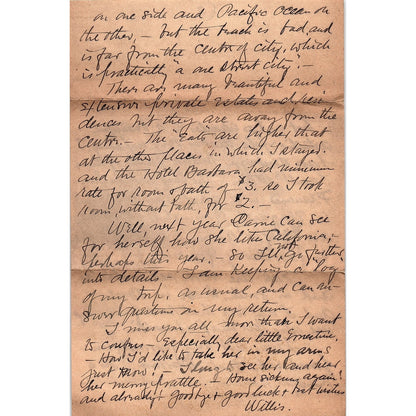 on one side and Pacific Ocean on
the other, - but the beach is bad, and
is far from the Centre of city, which
is practically "a one street city". -
There are many beautiful and
extensive private estates and resi-
dences but they are away from the
centre. - The "Eats" are higher that
at the other places in which I stayed.
and the Hotel Barbara had minimum
rate for room & bath of $3. so I took
room, without bath, for $2. -
Well, next year Carrie can see
for herself how she like California, -
perhaps this year, - so I'll just go further
into details - I am keeping a "log"
of my trip, as usual, and can an-
swer questions on my return.
I miss you all more than I want
to confess - Especially, dear little Ernestine.
- How I'd like to take her in my arms
just now! - I long to see her and hear
her merry prattle. - Home sickness again!
and already + Goodbye + good luck + best wishes
Willis.